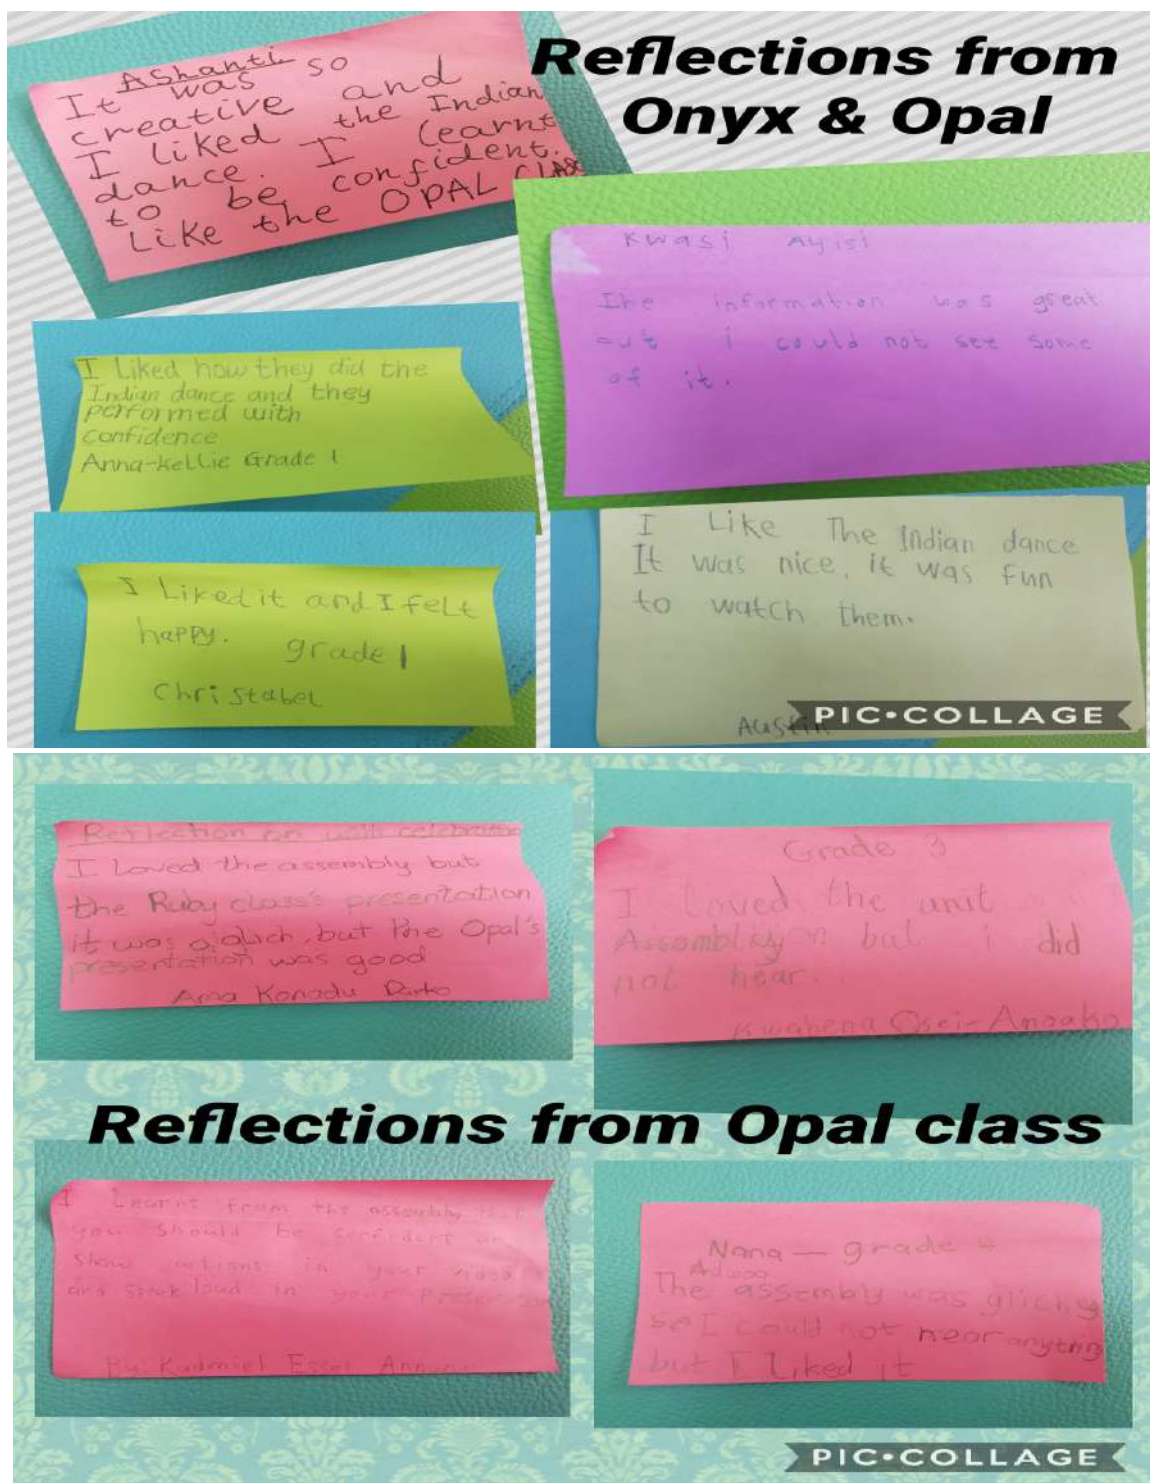 Reflections from
Onyx & Opal
Ashanti
It was so
creative and
I liked the Indian
dance. I learnt
to be confident.
Like the OPAL CLASS
Kwasi Ayisi
The information was great
but i could not see some
of it.
I Liked how they did the
Indian dance and they
performed with
confidence
Anna-kellie Grade 1
I Like The Indian dance
It was nice, it was fun
to watch them.
Austin
I Liked it and I felt
happy. grade 1
Christabel
PIC•COLLAGE
Reflection on
I Loved the assembly but
the Ruby class's presentation
it was a glich, but the Opal's
presentation was good
Ama Konadu Darko
Grade 3
I loved the unit
but i did
not hear.
Kwabena Osei-Amoako
Reflections from Opal class
I Learnt from the assembly that
you should be
show actions in your video
and speak loud in your
By: Kadmiel
Nana — grade 4
Adwoa
The assembly was glichy
so I could not hear anything
but I liked it
PIC•COLLAGE